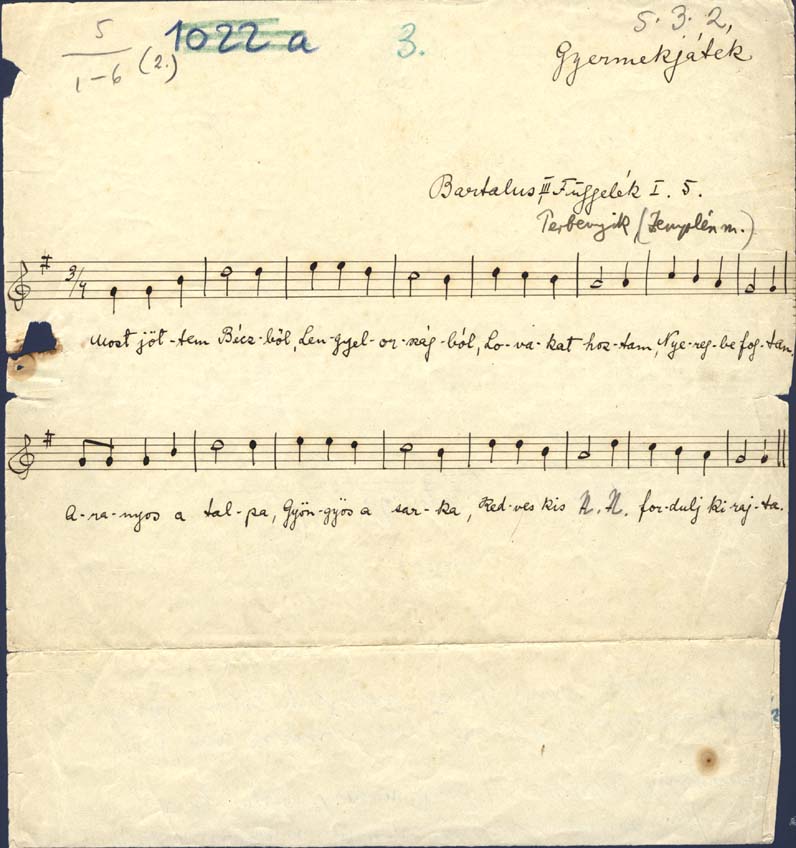 5
1-6 (2.)
1022 a
3.
5. 3. 2,
Gyermekjáték
Bartalus III Függelék I. 5.
Perbenyik (Zemplén m.)
3/4
Most jöt-tem Bécz-ből, Len-gyel-or-szág-ból, Lo-va-kat hoz-tam, Nye-reg-be fog-tam.
A-ra-nyos a tal-pa, Gyön-gyös a sar-ka, Ked-ves kis N. N. for-dulj ki raj-ta.